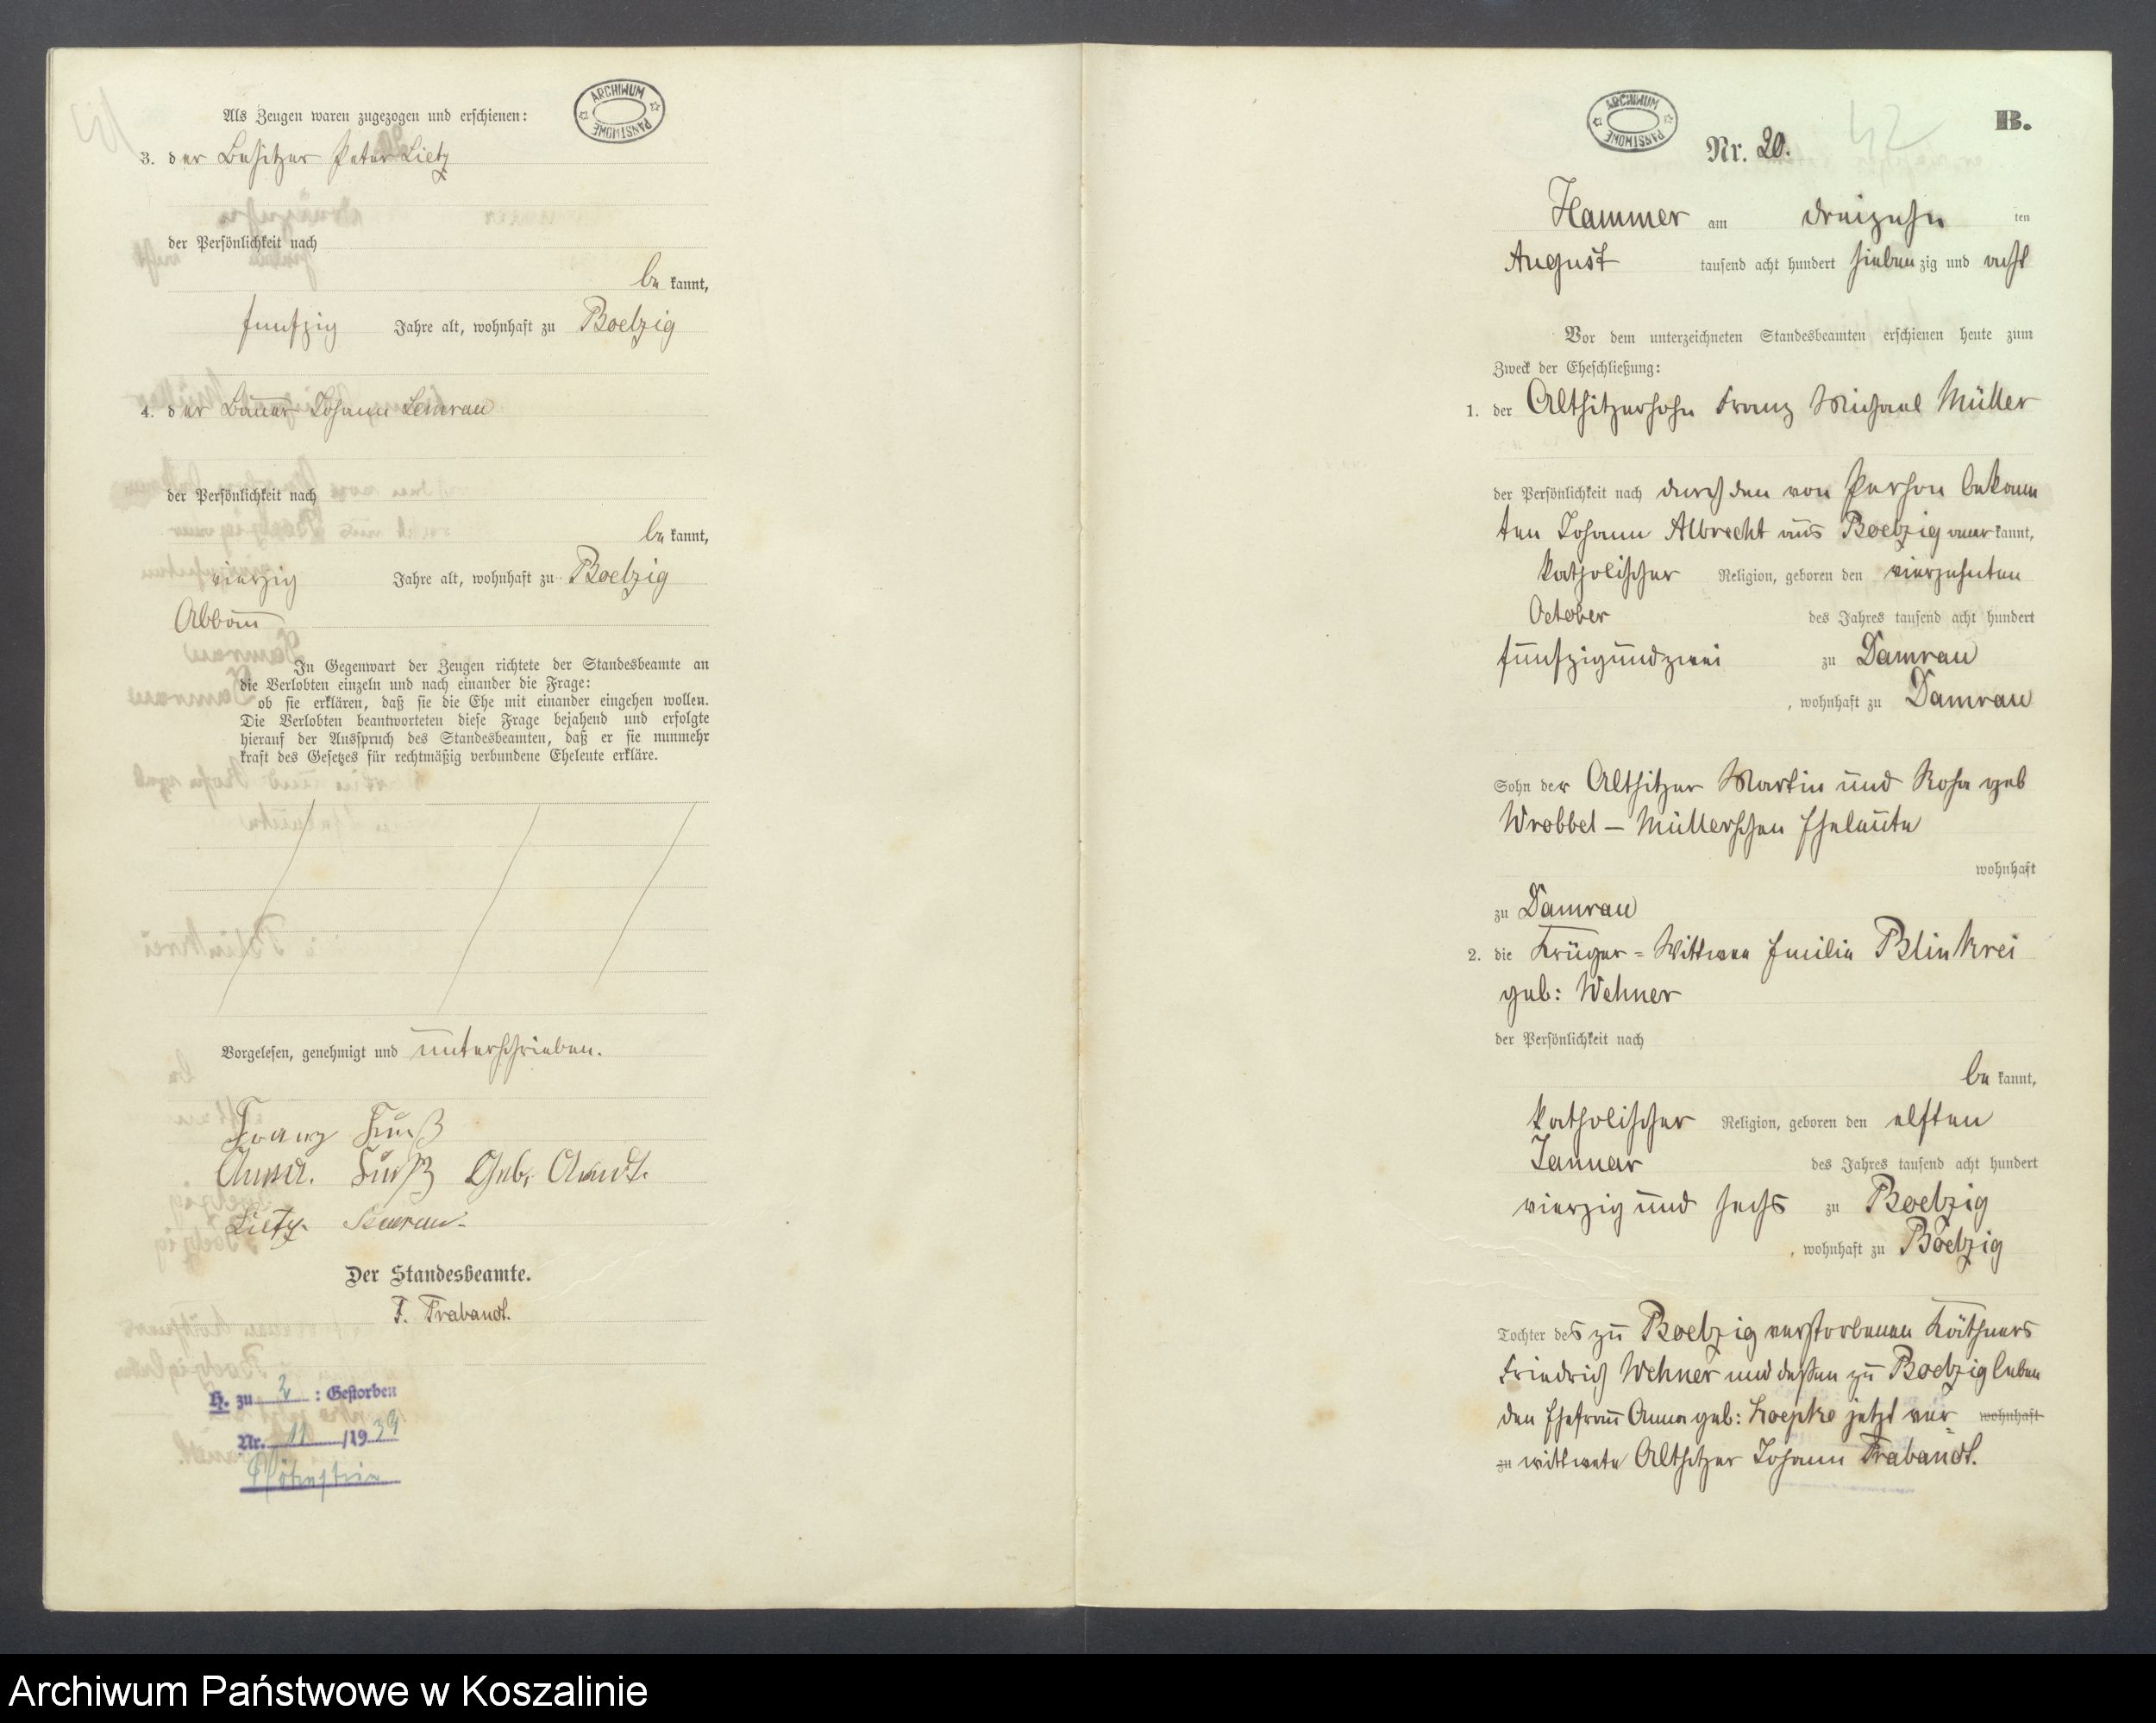 ARCHIWUM PAŃSTWOWE
Als Zeugen waren zugezogen und erschienen:
3. der Besitzer Peter Lietz
der Persönlichkeit nach
be kannt,
funfzig Jahre alt, wohnhaft zu Boelzig
4. der Bauer Johann Semrau
der Persönlichkeit nach
be kannt,
vierzig Jahre alt, wohnhaft zu Boelzig
Abbau
In Gegenwart der Zeugen richtete der Standesbeamte an
die Verlobten einzeln und nach einander die Frage:
ob sie erklären, daß sie die Ehe mit einander eingehen wollen.
Die Verlobten beantworteten diese Frage bejahend und erfolgte
hierauf der Ausspruch des Standesbeamten, daß er sie nunmehr
kraft des Gesetzes für rechtmäßig verbundene Eheleute erkläre.
Vorgelesen, genehmigt und unterschrieben.
Franz
Anna. Geb.
Lietz. Semrau.
Der Standesbeamte.
F. Trabandt.
H. zu 2 : Gestorben
Nr. 11 /19 39
ARCHIWUM PAŃSTWOWE
B.
Nr. 20.
Hammer am dreizehn ten
August tausend acht hundert sieben zig und acht
Vor dem unterzeichneten Standesbeamten erschienen heute zum
Zweck der Eheschließung:
1. der Altsitzersohn Franz Michael Müller
der Persönlichkeit nach durch den von Person bekann
ten Johann Albrecht aus Boelzig aner kannt,
katholischer Religion, geboren den vierzehnten
October des Jahres tausend acht hundert
fünfzigundzwei zu Damrau
, wohnhaft zu Damrau
Sohn der Altsitzer Martin und Rosa geb
Wrobbel – Müllerschen Eheleute
wohnhaft
zu Damrau
2. die Krüger = Wittwe Emilie Blinkrei
geb: Wehner
der Persönlichkeit nach
be kannt,
katholischer Religion, geboren den elften
Januar des Jahres tausend acht hundert
vierzig und sechs zu Boelzig
, wohnhaft zu Boelzig
Tochter des zu Boelzig verstorbenen Käthners
Friedrich Wehner und deßen zu Boelzig leben
den Ehefrau Anna geb: Koepke jetzt ver wohnhaft
zu wittwete Altsitzer Johann Trabandt.
Archiwum Państwowe w Koszalinie